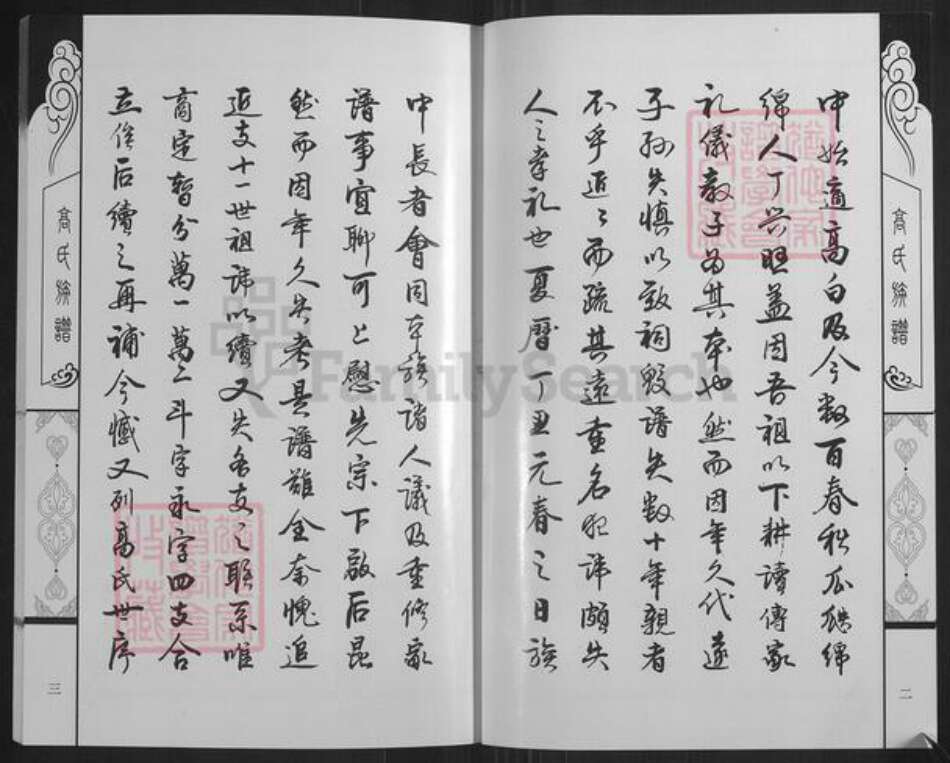 高氏族譜
二
中始適高白及今数百春秋瓜瓞綿
綿人丁兴旺蓋因吾祖以下耕讀傳家
礼儀教子为其本也然而因年久代遠
子孙失慎以致祠毁谱失数十年親者
不乎近々而疏其遠重名犯讳頗失
人之孝礼也夏曆丁丑元春之日族
中長者會同本族諸人議及重修家
譜事宜聊可上慰先宗下啟后昆
然而因年久失考具譜難全奈愧追
近支十一世祖讳以續又失各支之联系唯
商定暂分萬一萬二斗字永字四支合
立俟后續之再補今憾又列高氏世序
高氏族譜
三
FamilySearch